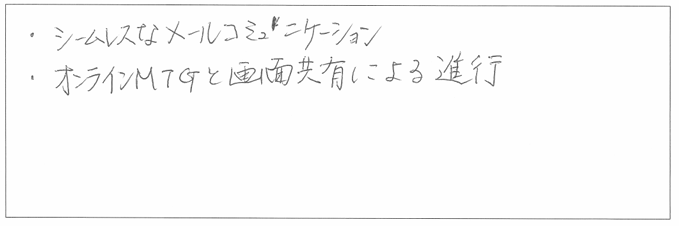 ・シームレスなメールコミュニケーション
・オンラインMTGと画面共有による進行